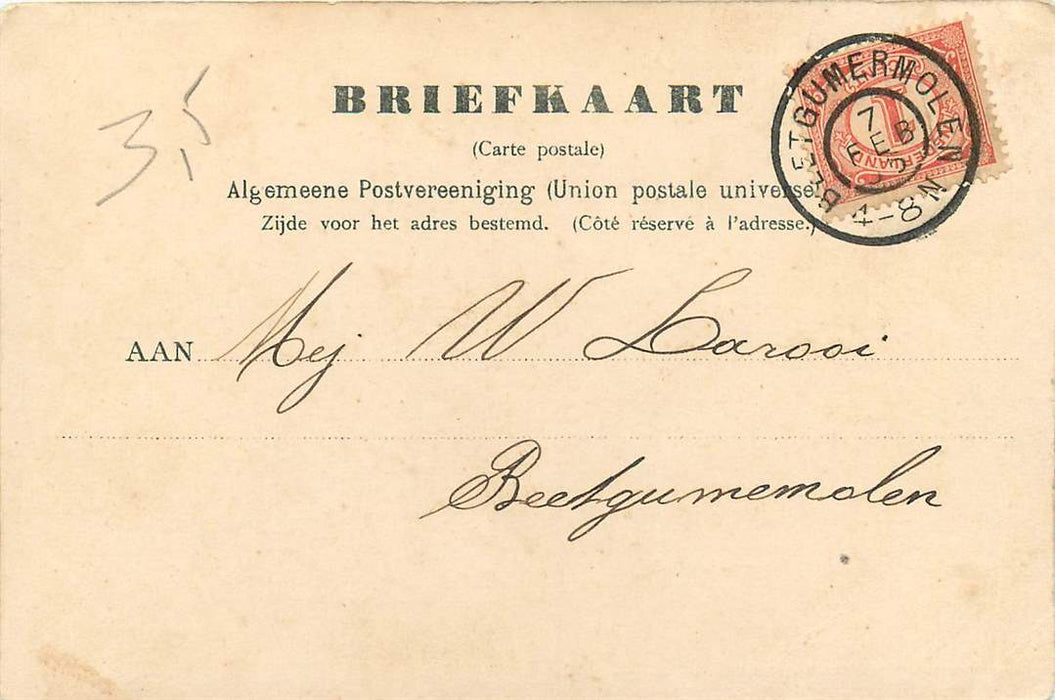 3,5
BRIEFKAART
(Carte postale)
Algemeene Postvereeniging (Union postale universe
Zijde voor het adres bestemd. (Côté réservé à l'adresse.)
BEETGUMERMOLEN
7
FEB
4-8N
AAN Mej W Larooi
Beetgumemolen